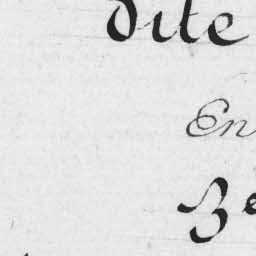 dite
En
3e